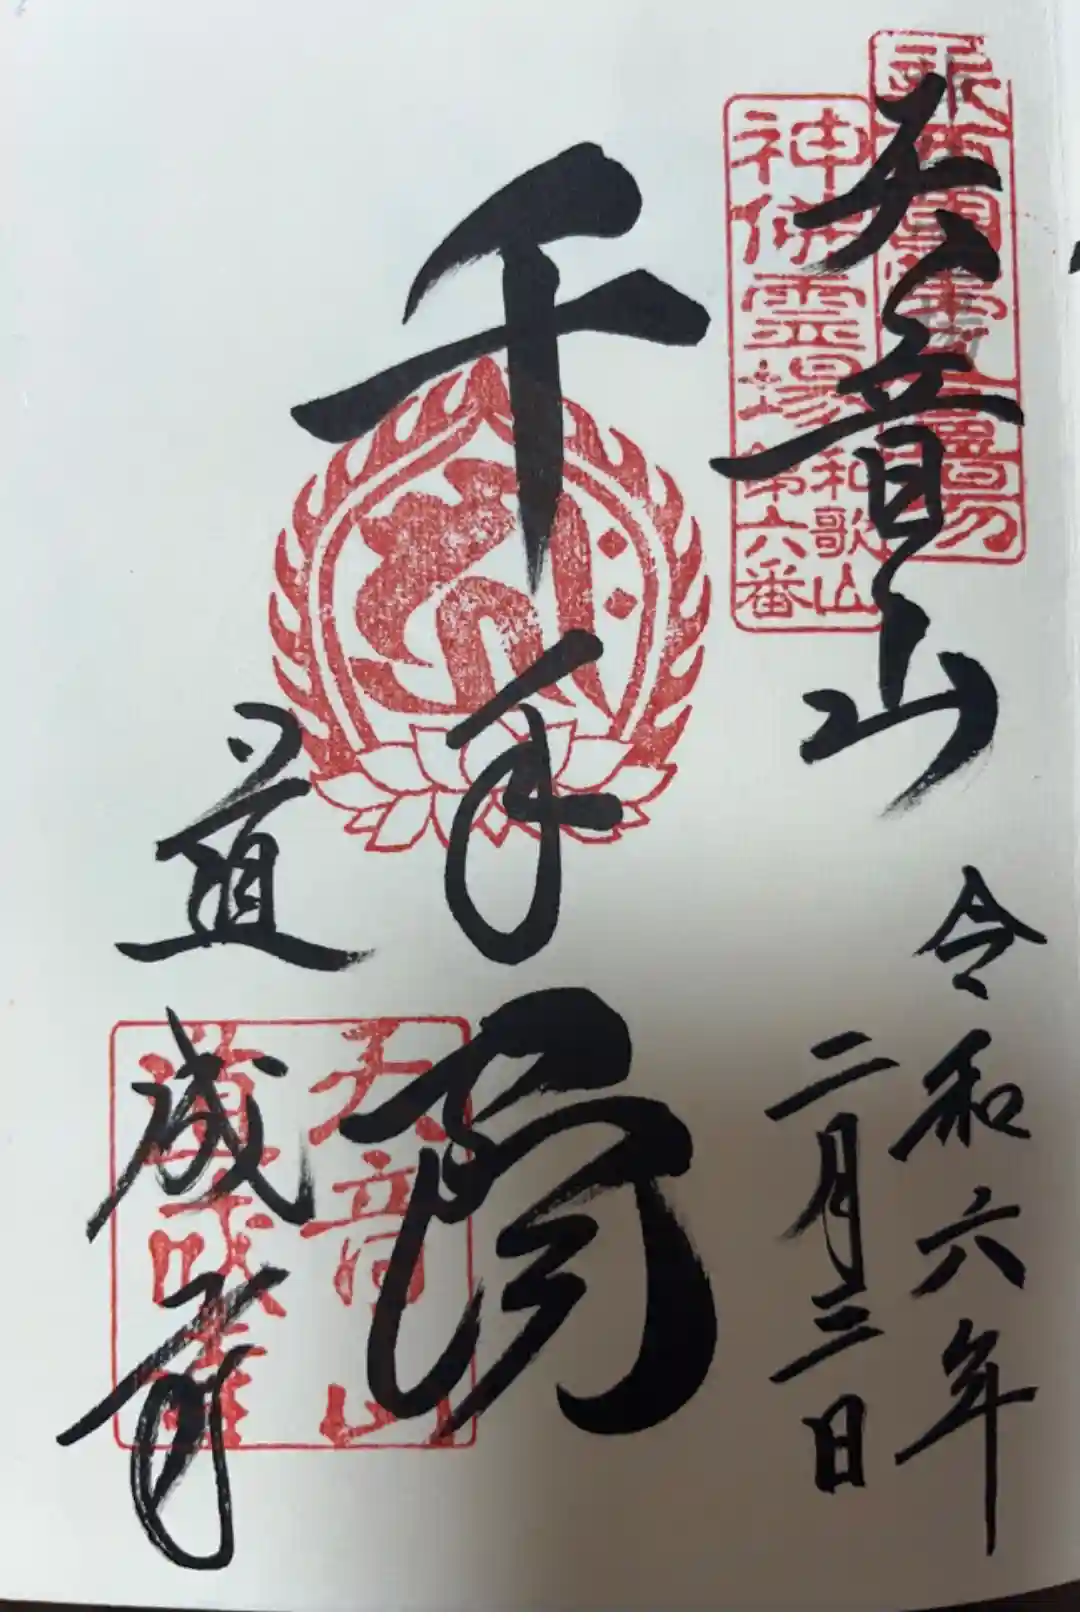 天音山
令和六年
二月三日
千手閣
道成寺
神佛霊場
和歌山
第六番
天音山
道成寺